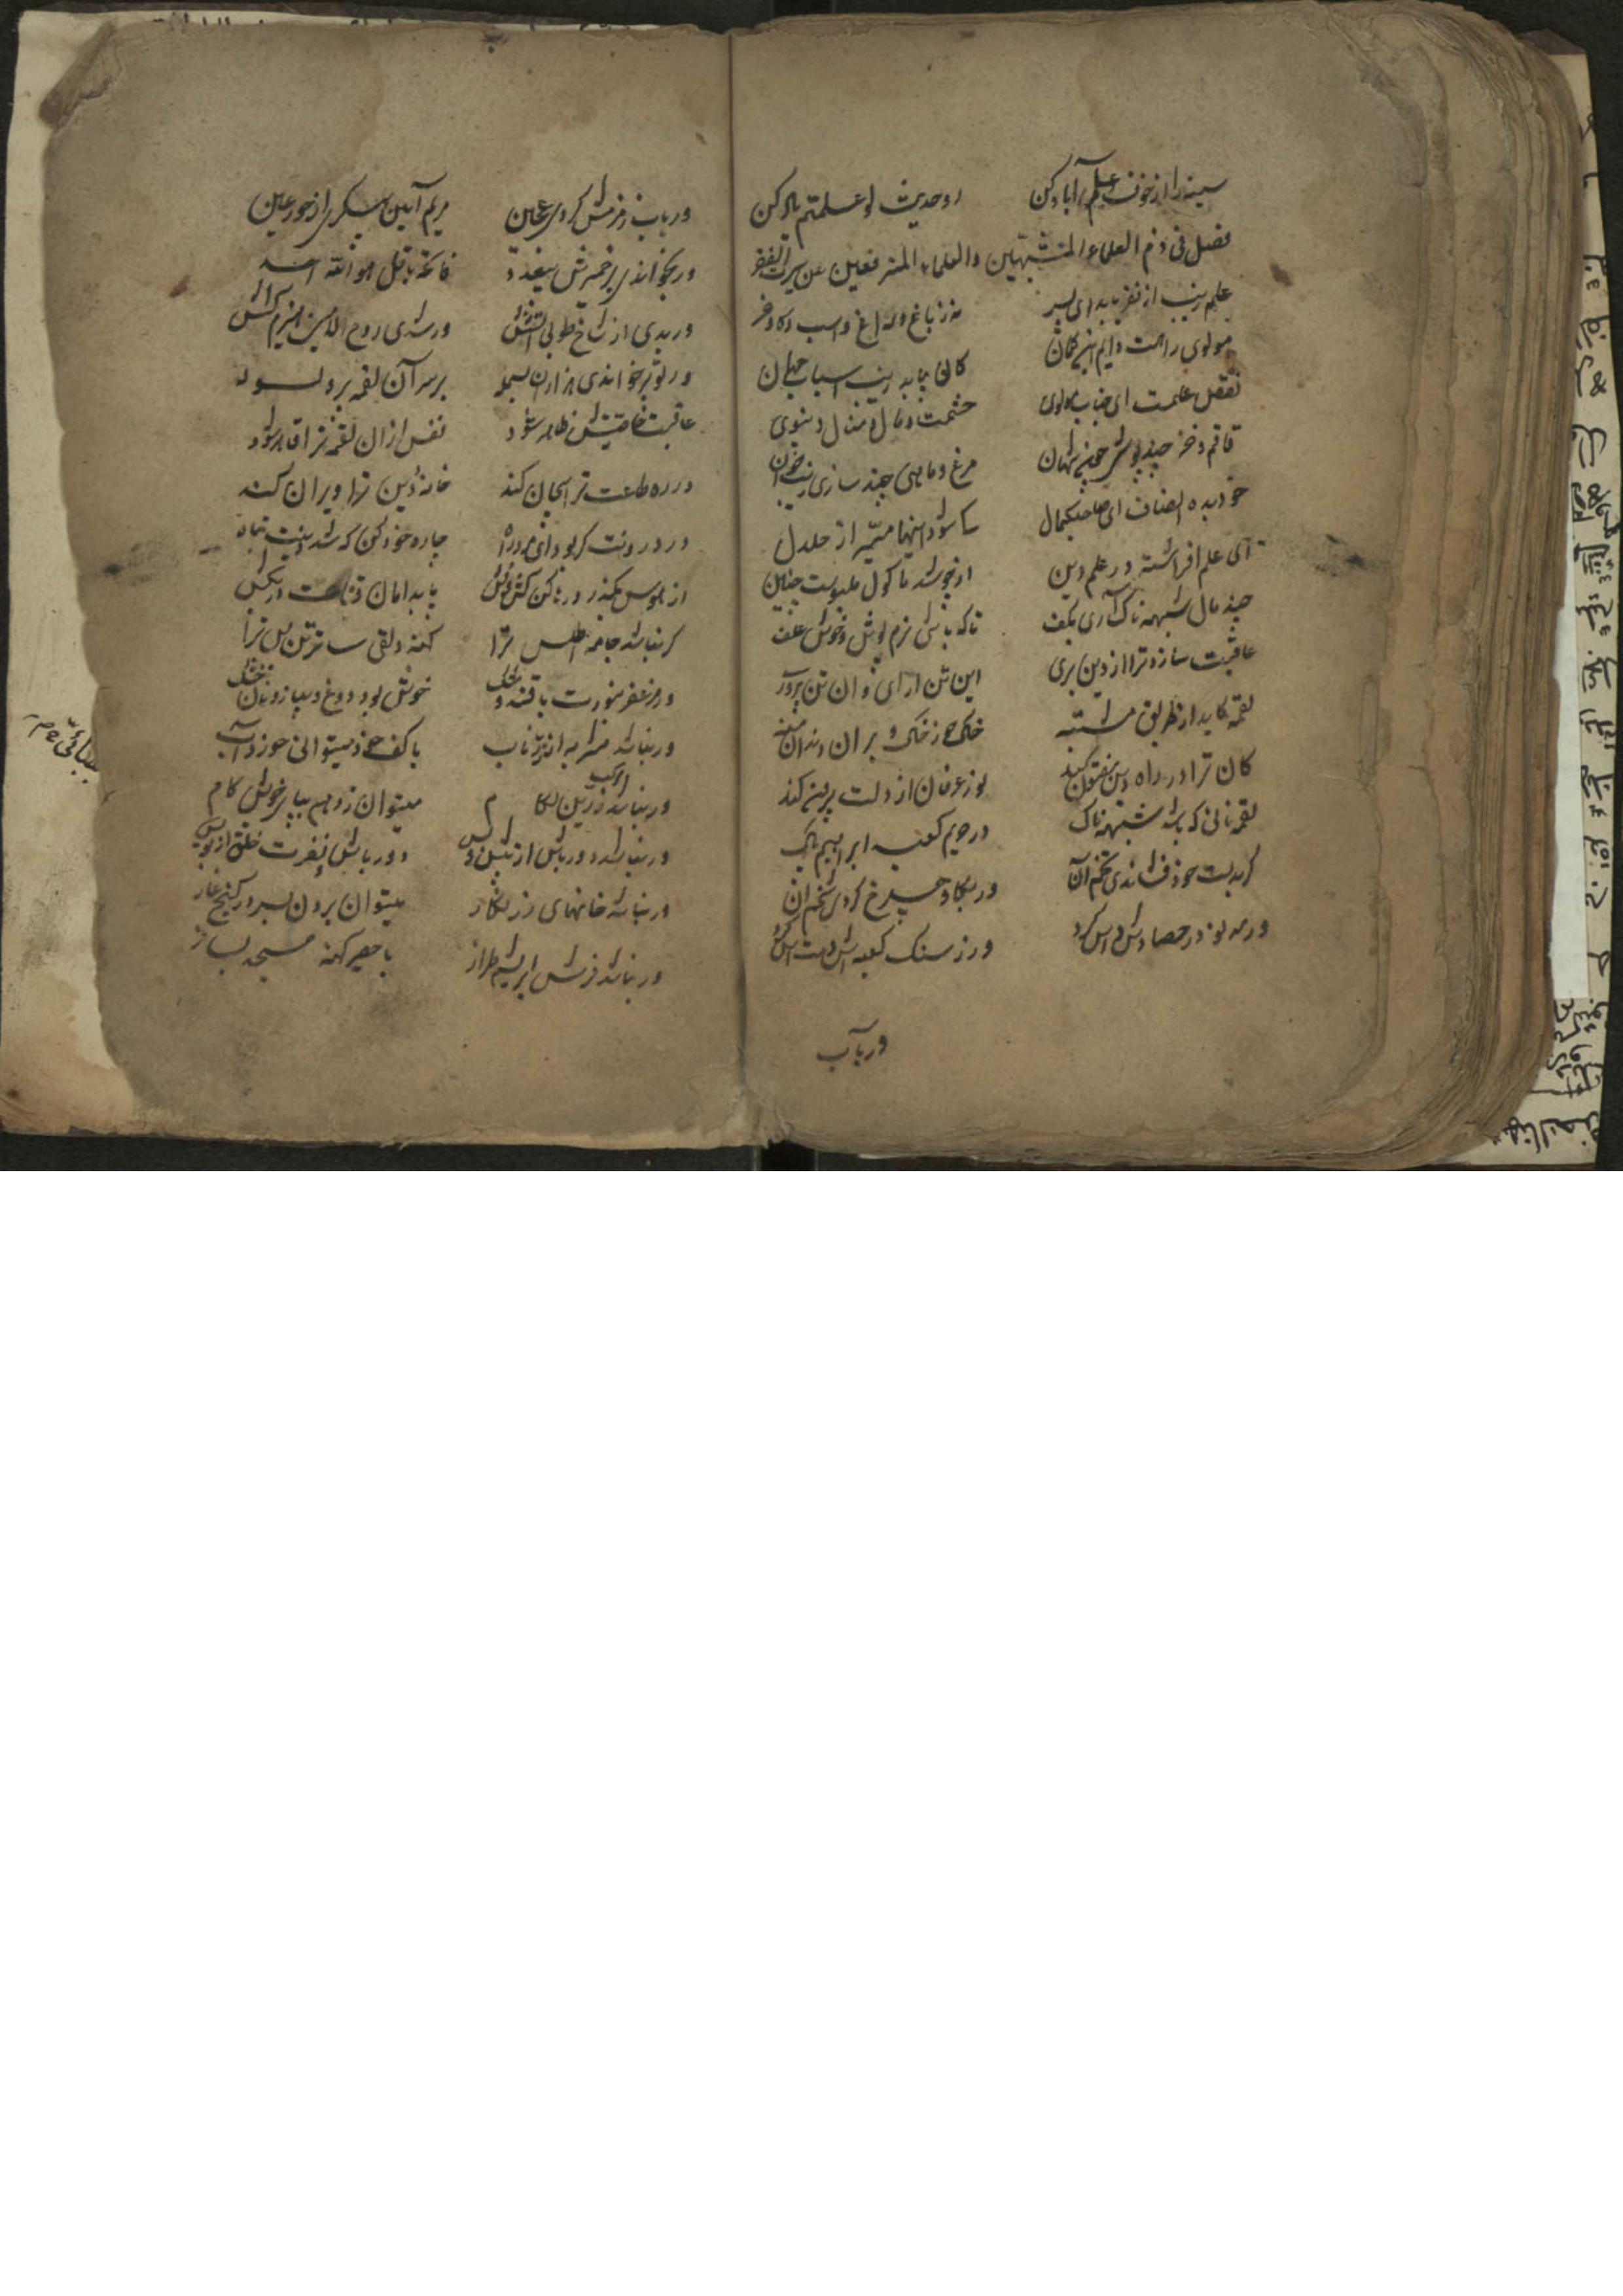 سینه را از خوف علم آباد کن رو حدیث لو علمتم یاد کن
فصل فی ذم العلماء المتشبهین والعلماء المترفعین عن سیرت الفقر
علم زیب از فقر یابد ای پسر نه ز باغ و راغ و اسب و کاو و خر
مولوی را هست دایم این کمان کان بیابد زیب اسباب جهان
نقص علمست ای جناب مولوی حشمت و مال و منال دنیوی
قاقم و خز چند پوشی چون شهان مرغ و ماهی چند سازی زیب خوان
خود بده انصاف ای صاحبکمال کی شود اینها میسر از حلال
ای علم افراشته در علم دین از چه شد ماکول و ملبوست چنین
چند مال شبهه ناک آری بکف تا که باشی نرم پوش و خوش علف
عاقبت سازد ترا از دین بری این تن آرای و آن تن پروری
لقمه کاید از طریق مشتبه خاک خور خاک و بر آن دندان منه
کان ترا در راه دین مفتون کند نور عرفان از دلت بیرون کند
لقمه نانی که باشد شبهه ناک در حریم کعبه ابراهیم پاک
کر بدست خود فشاندی تخم آن ور بکاو چرخ کردی شخم آن
ور مه نو در حصادش داس کرد ور ز سنک کعبه اش دست آس کرد
ور بآب
ور بآب زمزمش کردی عجین مریم آیین پیکری از حور عین
ور بخواندی بر خمیرش بیعدد فاتحه با قل هو الله احد
ور بدی از شاخ طوبی آتشش ور شدی روح الامین هیزم کشش
ور تو برخواندی هزاران بسمله بر سر آن لقمه پر ولوله
عاقبت خاصیتش ظاهر شود نفس از آن لقمه ترا قاهر شود
در ره طاعت ترا بیجان کند خانه دین ترا ویران کند
درد دینت کر بود ای مرد راه چاره خود کن که شد دینت تباه
از هوس بکذر رها کن کش و فش پا بدامان قناعت در بکش
کر نباشد جامه اطلس ترا کهنه دلقی ساتر تن بس ترا
ور مزعفر نبودت با قند و مشک خوش بود دوغ و پیاز و نان خشک
ور نباشد مشربه از زر ناب با کف خود میتوانی خورد آب
ور نباشد مرکب زرین لکام میتوان زد هم بپای خویش کام
ور نباشد دور باش از پیش و پس دور باش نفرت خلق از تو بس
ور نباشد خانهای زر نکار میتوان بردن بسر در کنج غار
ور نباشد فرش ابریشم طراز با حصیر کهنه مسجد بساز